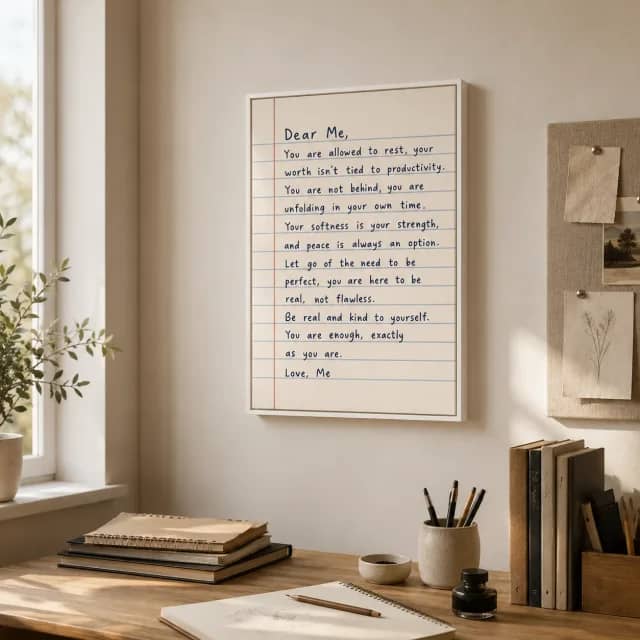 Dear Me,
You are allowed to rest, your
worth isn't tied to productivity.
You are not behind, you are
unfolding in your own time.
Your softness is your strength,
and peace is always an option.
Let go of the need to be
perfect, you are here to be
real, not flawless.
Be real and kind to yourself.
You are enough, exactly
as you are.
Love, Me